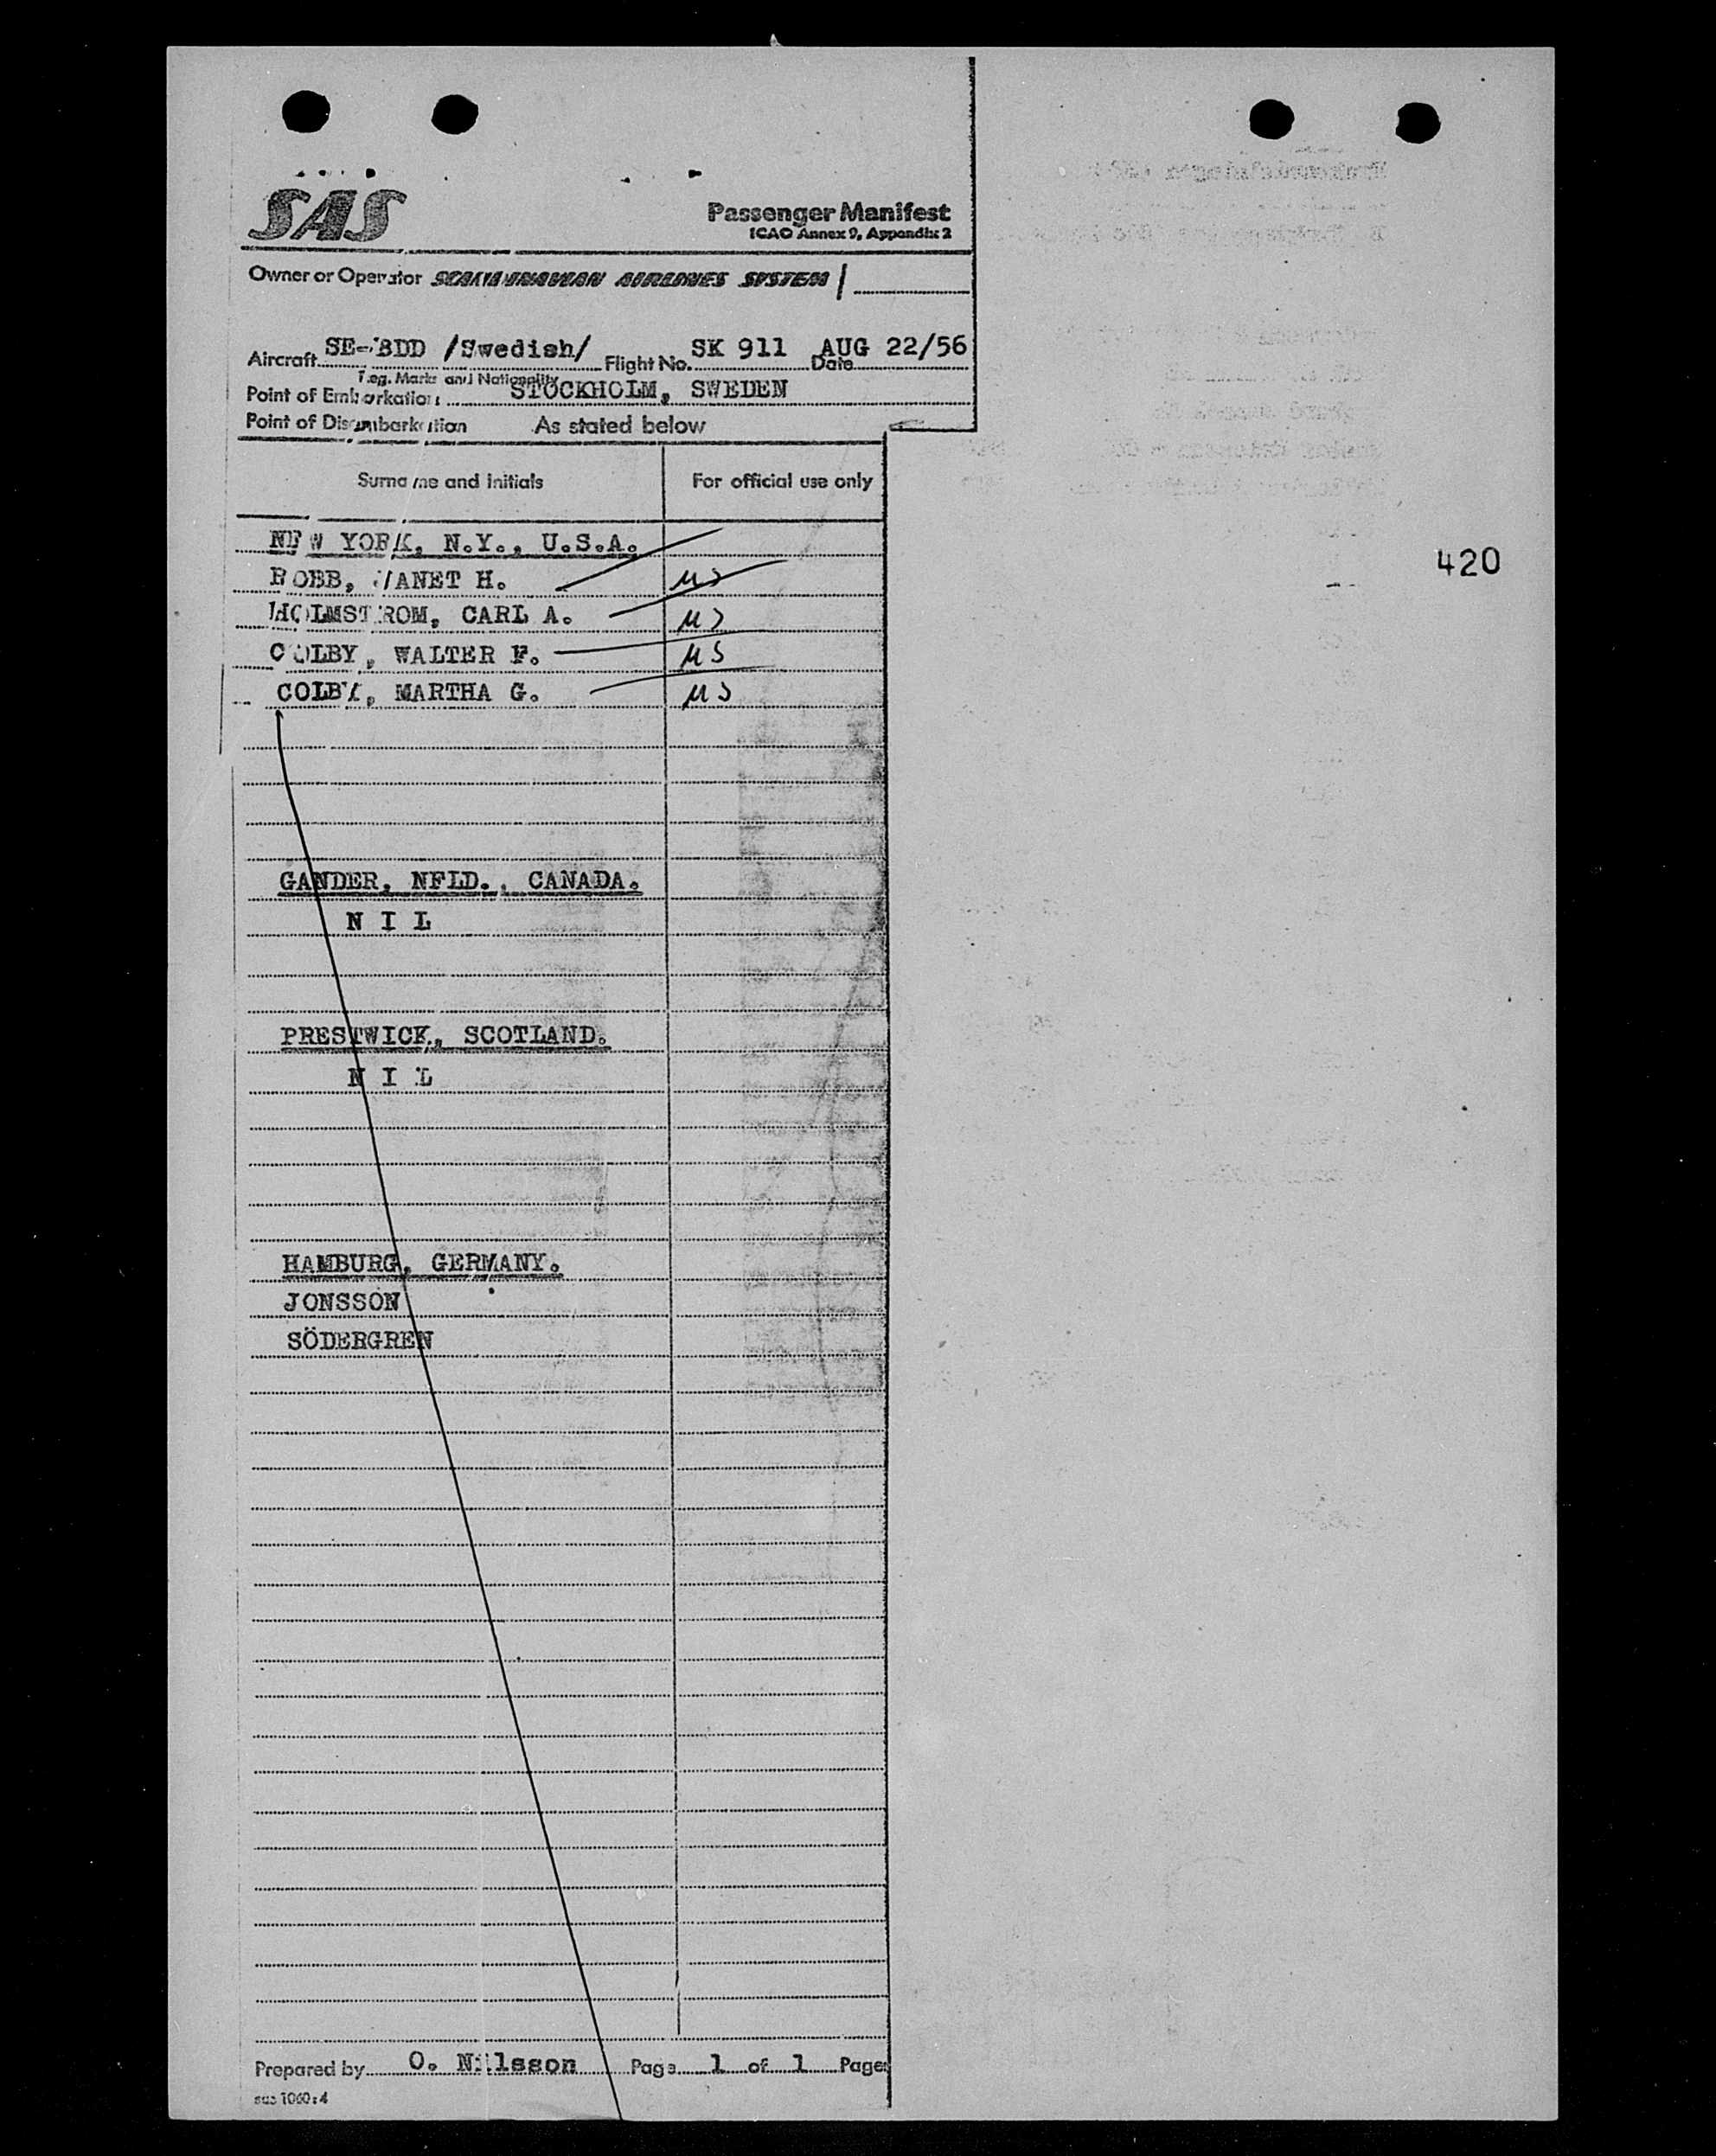 SAS
Passenger Manifest
ICAO Annex 9, Appendix 2
Owner or Operator SCANDINAVIAN AIRLINES SYSTEM /
Aircraft SE-BDD /Swedish/ Flight No. SK 911 Date AUG 22/56
Reg. Marks and Nationality
Point of Embarkation STOCKHOLM, SWEDEN
Point of Disembarkation As stated below
Surname and initials For official use only
NEW YORK, N.Y., U.S.A.
ROBB, JANET H. US
420
HOLMSTROM, CARL A. US
COLBY, WALTER F. US
COLBY, MARTHA G. US
GANDER, NFLD., CANADA.
N I L
PRESTWICK, SCOTLAND.
N I L
HAMBURG, GERMANY.
JONSSON
SÖDERGREN
Prepared by O. Nilsson Page 1 of 1 Pages
sas 1060:4